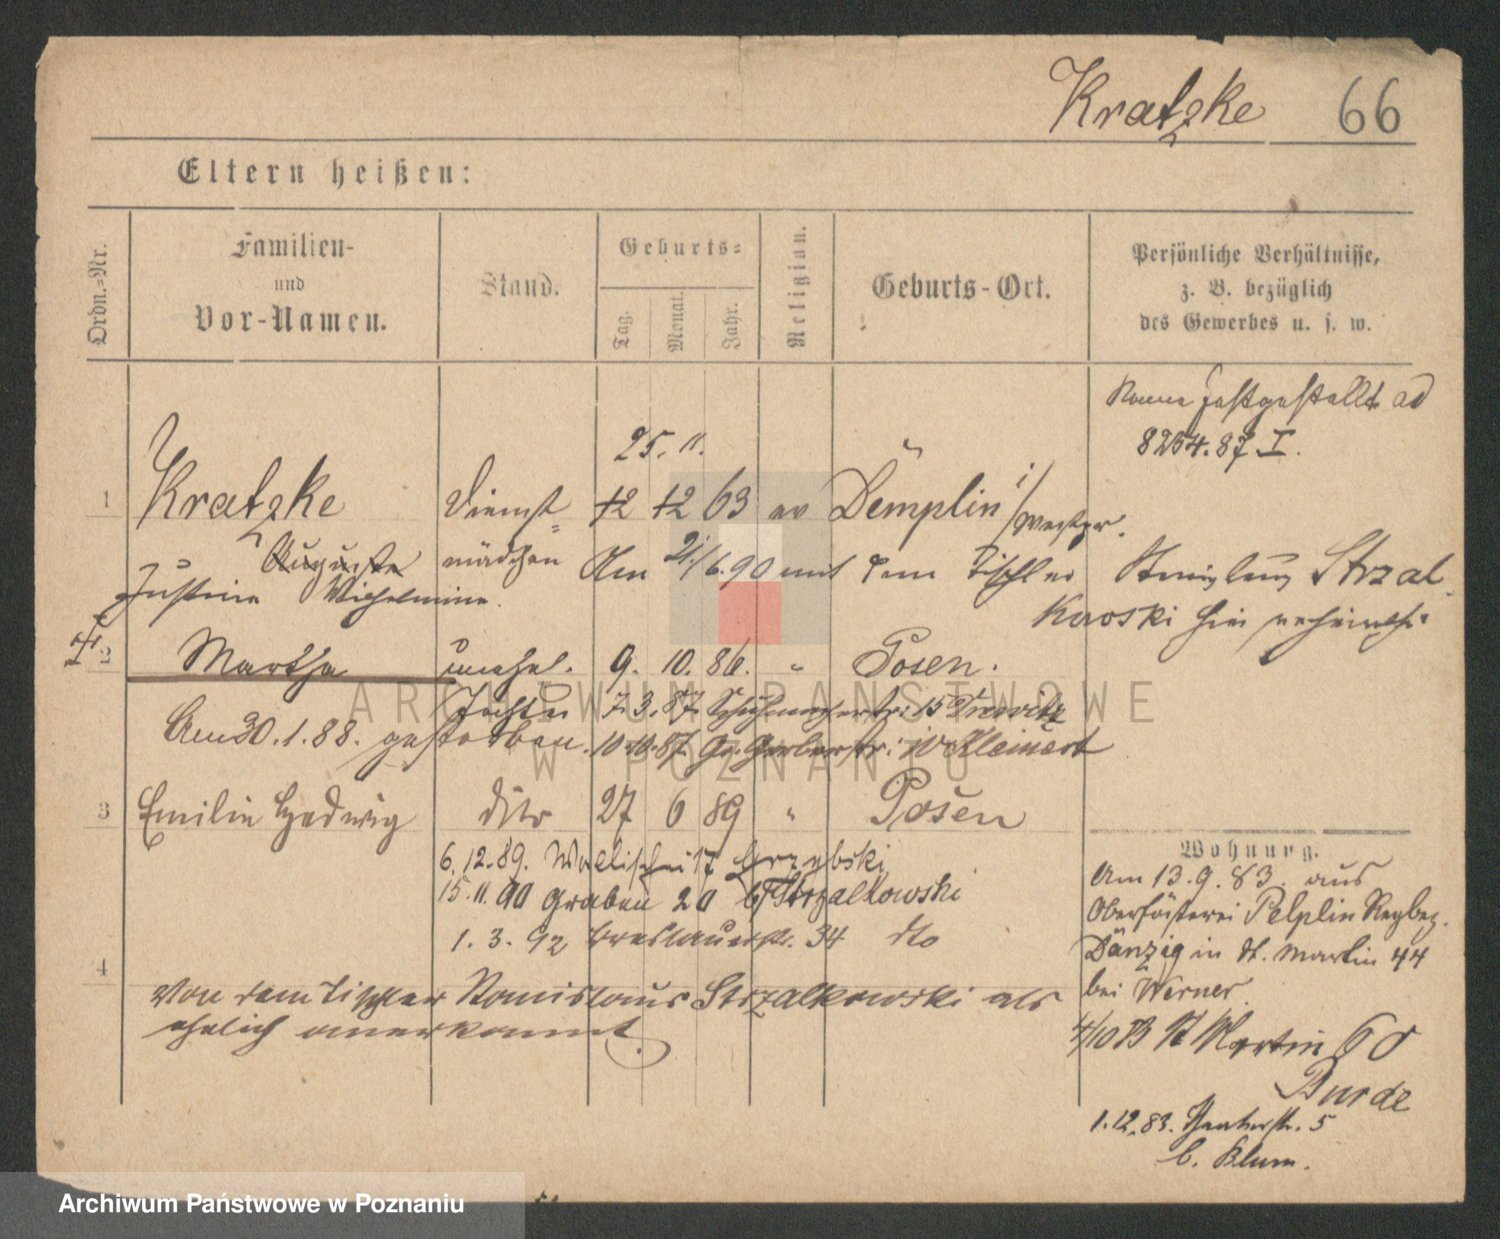 Kratzke 66
Eltern heißen:
Ordn.-Nr.
Familien-
und
Vor-Namen.
Stand.
Geburts-
Tag.
Monat.
Jahr.
Religion.
Geburts-Ort.
Persönliche Verhältnisse,
z. B. bezüglich
des Gewerbes u. s. w.
Name festgestellt ad
8254.87 I.
25. 11.
1 Kratzke Dienst= 12 12 63 ev Demplin i/Westpr.
Auguste mädchen
Justine Wilhelmine.
Am 21/6.90 mit dem Tischler Stanislaus Strzal-
kowski hier verheirathet
2 Martha unehel. 9. 10. 86. " Posen.
Tochter 7.3.87 Schuhmacherstr. 15
Am 30.1.88. gestorben. 10.10.87. Gr. Gerberstr. Kleinert
3 Emilie Hedwig dito 27 6 89 " Posen
6.12.89. Wallischei 17 Grzybski
15.11.90 Graben 20 b/ Strzalkowski
1.3.92 Breslauerstr. 34 dto
4
Von dem Tischler Stanislaus Strzalkowski als
ehelich anerkannt.
Wohnung.
Am 13.9.83. aus
Oberförsterei Pelplin Regbez.
Danzig in St. Martin 44
bei Werner.
4/10 83 St Martin 60
Burde
1.12.83. Theaterstr. 5
b. Blum.
ARCHIWUM PAŃSTWOWE
W POZNANIU
Archiwum Państwowe w Poznaniu